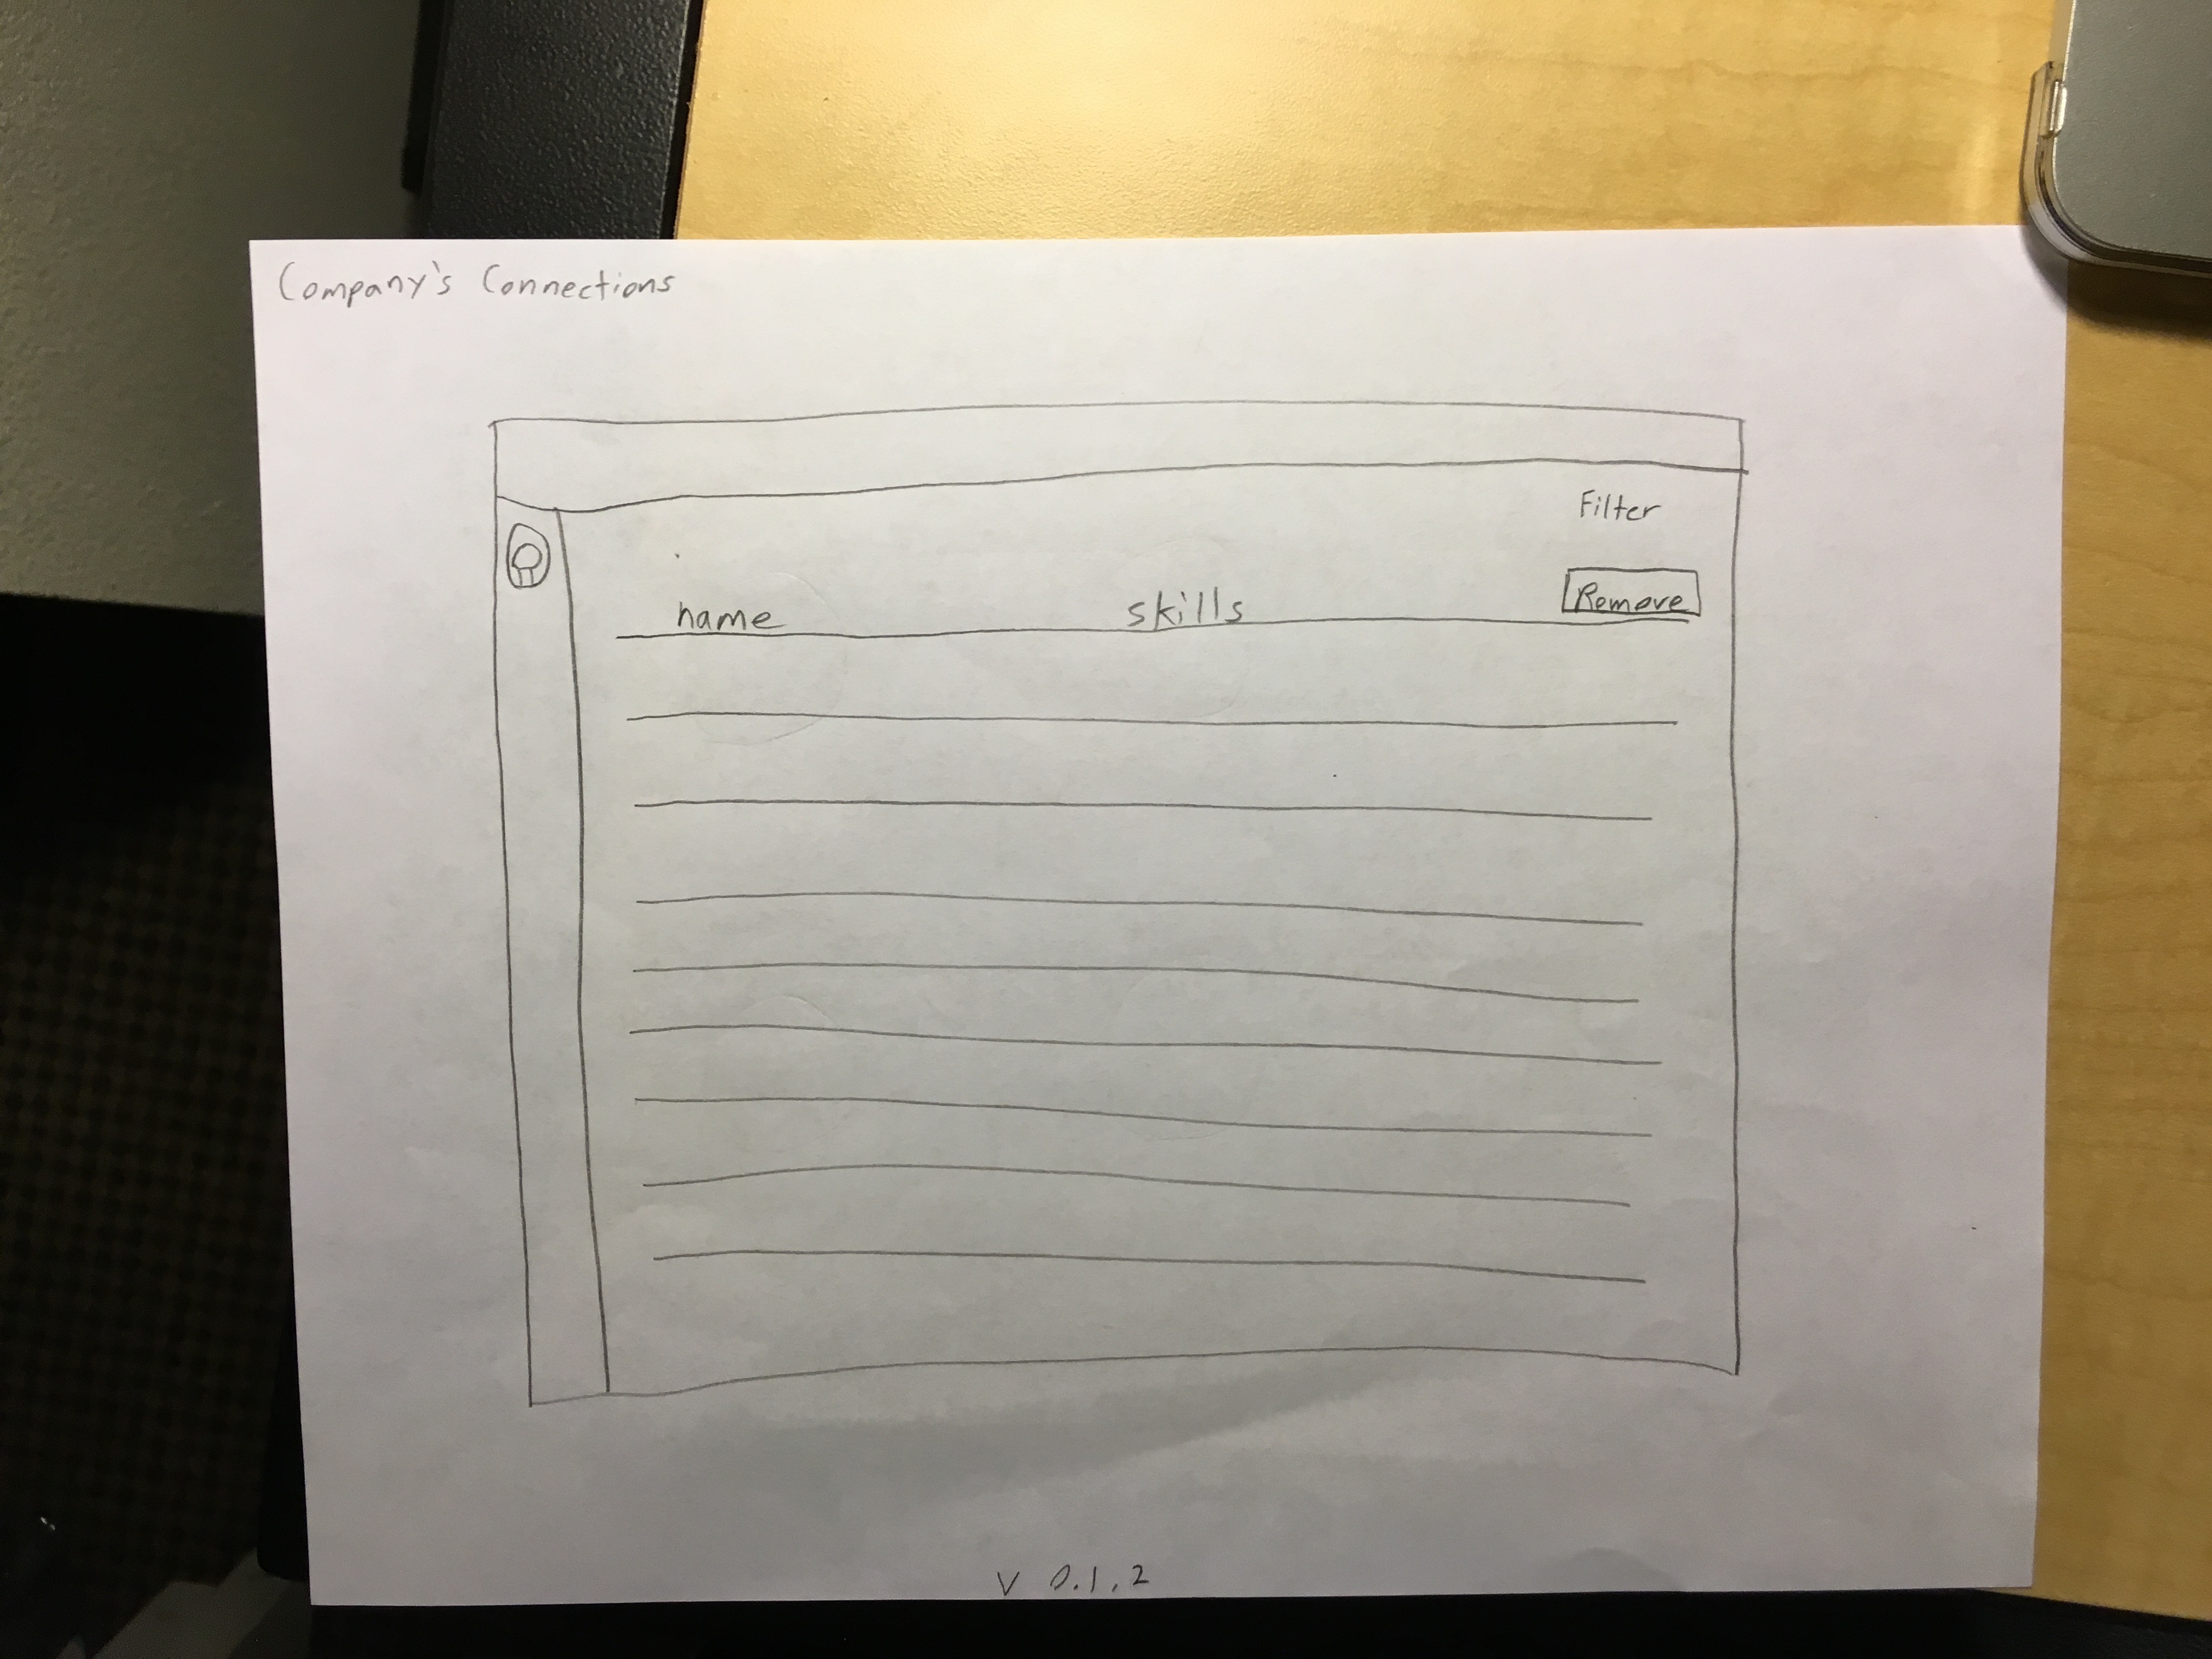 Company's Connections
Filter
name skills Remove
V 0.1.2